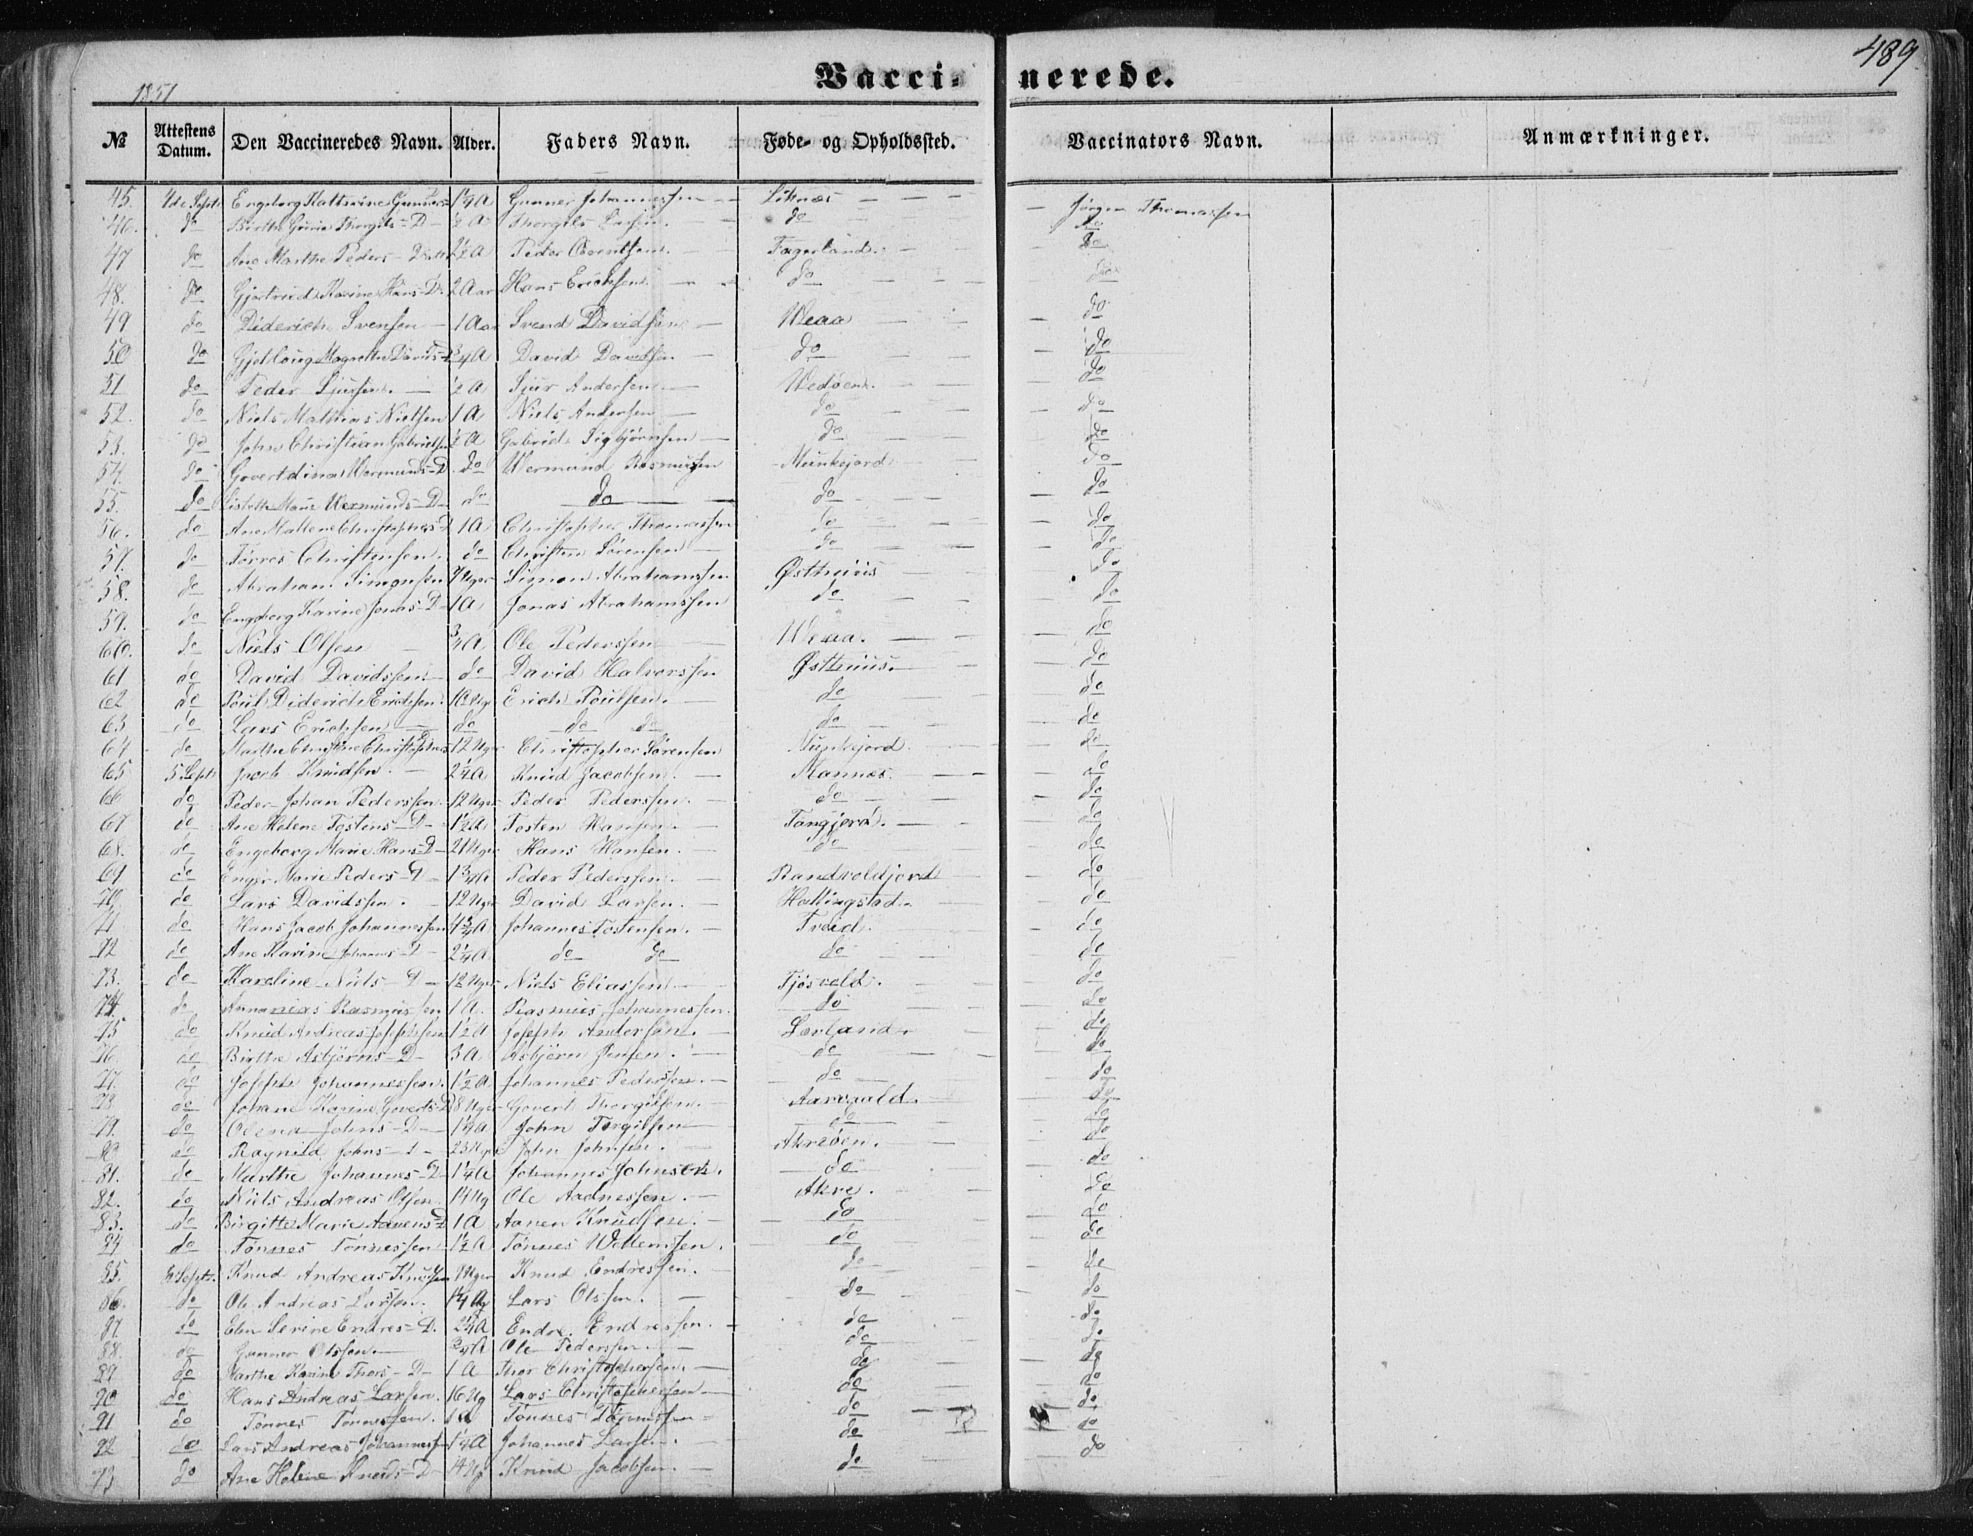 489
Vaccinerede.
1851
№ Attestens Datum. Den Vaccineredes Navn. Alder. Faders Navn. Føde- og Opholdssted. Vaccinators Navn. Anmærkninger.
45. 4de Sept Engeborg Kathrine Gunners D 1 1/4 A Gunner Johannessen Liknæs Jørgen Thomassen
46. do Berthe Thorgils-D 1/2 A Thorgils Larsen do do
47 do Ane Marthe Peders-Datt 2 1/2 A Peder do
48. do Gjertrud Karine Hans-D. 2 Aar Hans Erichsen do do
49 do Diderich Svensen 1 Aar Svend Davidsen Weaa do
50 do David-D 3/4 A David Davidsen do do
51 do Peder Sjursen. 1/2 A Sjur Andersen Wedøen. do
52. do Niels Mathias Nielsen 1 A Niels Andersen do do
53. do John Christian Gabrielsen 1/2 A Gabriel Sigbjørnsen do do
54. do Wermunds-D. do Wermund Rasmussen Munkejord do
55. do Wermunds-D do do do do
56. do Ane Mallene Christophers D 1 A Christopher Thomassen do do
57. do Tørres Christensen. do Christen Sørensen do do
58. do Abraham Simonsen Uger Simon Abrahamssen Østhuus do
59. do Engeborg Karine Jonas-D 1 A Jonas Abrahamssen do do
60. do Niels Olsen 3/4 A Ole Pederssen Weaa. do
61 do David Davidssen do David Halvorssen Østhuus. do
62 do Poul Diderich Erichsen. 10 Ug Erich Poulsen. do do
63 do Lars Erichsen do do do do do
64 do Marthe Christine Christophers D 12 Uger Christopher Sørensen Munkejord do
65 5 Sept Jacob Knudsen. 2 1/4 A Knud Jacobsen. Mannes. do
66 do Peder Johan Pederssen 12 Uger Peder Pederssen. do do
67 do Ane Helene Tostens-D 1 1/2 A Tosten Hansen. Tangjerd. do
68. do Engeborg Marie Hans-D 21 Uger Hans Hansen. do do
69 do Marie Peders-D 1 3/4 A Peder Pederssen. do
70. do Lars Davidssen. 12 Uger David Larsen. Hallingstad. do
71 do Hans Jacob Johannessen 4 3/4 A Johannes Tostensen. do
72 do Ane Karine Johannes-D 2 1/4 A do do do do
73. do Karoline Niels-D 12 Uger Niels Eliassen Tjøsvold. do
74 do Rasmussen 1 A. Rasmus Johannessen. do do
75 do Knud Andreas Josephsen 1 1/2 A Joseph Andersen. do
76. do Birthe Asbjørns-D 3 A Asbjørn Jensen. do do
77. do Joseph Johannessen. 1 1/2 A Johannes Pederssen. do do
78. do Johane Karine Goverts D 8 Uger Govert Thorgilsen. do
79. do Olena Johns-D 1 1/4 A John Torgilsen do do
80 do Ragnild Johns-D 23 Uger John Johnsen. Akreøen. do
81. do Marthe Johannes-D 1 1/4 A Johannes Johnsen. do do
82. do Niels Andreas Olsen. 14 Ug Ole Aadnessen. Akre. do
83. do Birgitte Marie Aanens D 1 A Aanen Knudsen. do do
84 do Tønnes Tønnessen 1 1/2 A Tønnes Wellemsen. do do
85. 6 Septr. Knud Andreas Knudsen Uger Knud Endressen. do do
86. do Ole Andreas Larssen. Lars Olssen. do do
87 do Elen Serine Endres-D. 2 1/4 A Endre Endressen. do do
88. do Gunner Olssen. 3/4 A Ole Pederssen. do do
89 do Marthe Karine Thors-D 1 A Thor Christophersen. do do
90 do Hans Andreas Larsen. 16 Ug Lars Christophersen do do
91 do Tønnes Tønnessen. 1 A Tønnes Tønnessen do do
92 do Lars Andreas Johannessen 1 1/4 A Johannes Larsen. do do
93 do Ane Helene Knuds-D 14 Ug Knud Jacobsen. do